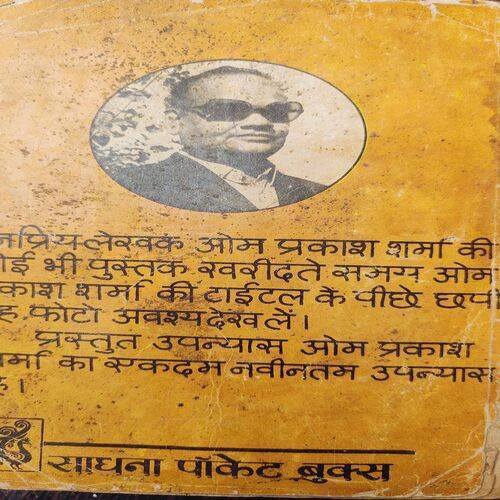 नप्रिय लेखक ओम प्रकाश शर्मा की
ोई भी पुस्तक खरीदते समय ओम
काश शर्मा की टाईटल के पीछे छपी
ह फोटो अवश्य देख लें।
प्रस्तुत उपन्यास ओम प्रकाश
र्मा का एकदम नवीनतम उपन्यास
है।
साधना पॉकेट बुक्स